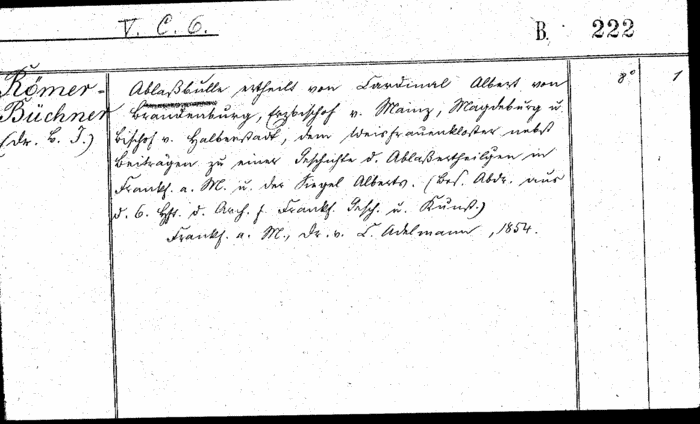 V. C. 6.
B. 222
Römer-
Büchner
(Dr. B. J.)
Ablaßbulle ertheilt von Cardinal Albert von
Brandenburg, Erzbischof v. Mainz, Magdeburg u.
Bischof v. Halberstadt, dem Weisfrauenkloster nebst
Beiträgen zu einer Geschichte d. Ablaßertheilgen in
Frankf. a. M. u. der Siegel Alberts. (Bes. Abdr. aus
d. 6. Hft. d. Arch. f. Frankf. Gesch. u. Kunst.)
Frankf. a. M., Dr. v. C. Adelmann, 1854.
8° 1